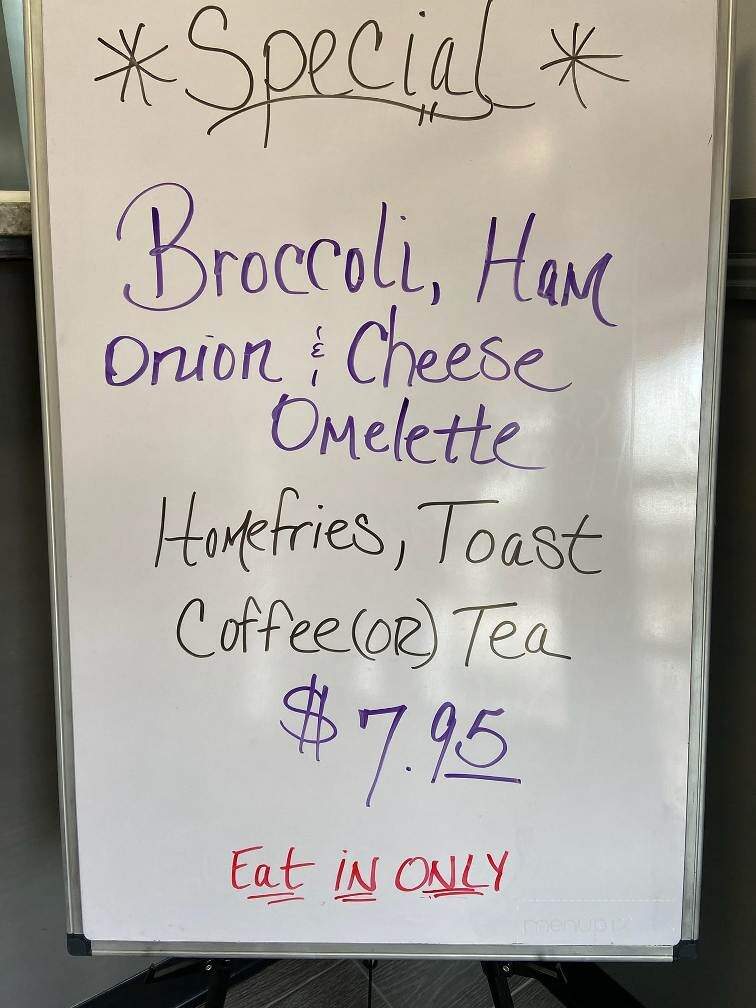 * Special *
Broccoli, Ham
Onion & Cheese
Omelette
Homefries, Toast
Coffee (OR) Tea
$7.95
Eat IN ONLY
menupix